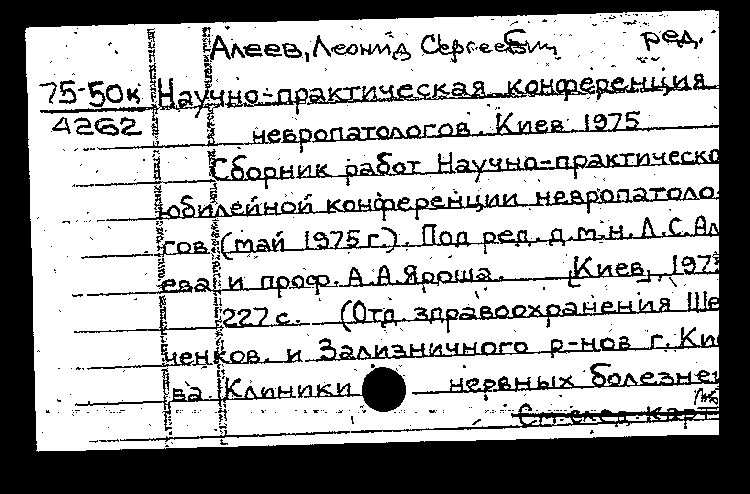 Алеев, Леонид Сергеевич ред.
75-50к Научно-практическая конференция
4262
невропатологов. Киев 1975
Сборник работ Научно-практическо
юбилейной конференции невропатоло
гов (май 1975 г.). Под ред. д.м.н. Л.С. Ал
ева и проф. А.А. Яроша. [Киев], 1975
227 с. (Отд. здравоохранения Ше
ченков. и Зализничного р-нов г. Ки
ва Клиники нервных болезне
См. след. карт